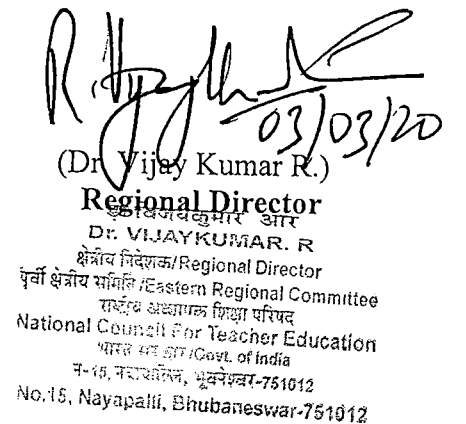 R. Vijay Kumar
03/03/20
(Dr. Vijay Kumar R.)
Regional Director
डॉ. विजयकुमार आर
Dr. VIJAYKUMAR. R
क्षेत्रीय निदेशक/Regional Director
पूर्वी क्षेत्रीय समिति/Eastern Regional Committee
राष्ट्रीय अध्यापक शिक्षा परिषद
National Council For Teacher Education
भारत सरकार/Govt. of India
न-15, नयापल्लि, भूवनेश्वर-751012
No.15, Nayapalli, Bhubaneswar-751012